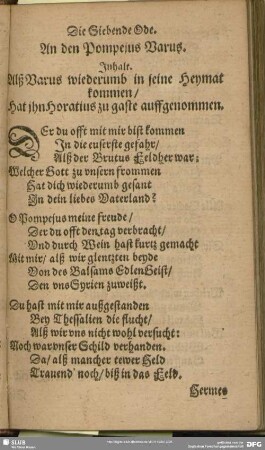 Die Siebende Ode.
An den Pompejus Varus.
Inhalt.
Alß Varus wiederumb in seine Heymat
kommen/
Hat jhn Horatius zu gaste auffgenommen.
DEr du offt mit mir bist kommen
In die euserste gefahr/
Alß der Brutus Feldher war:
Welcher Gott zu vnsern frommen
Hat dich wiederumb gesant
In dein liebes Vaterland?
O Pompejus meine freude/
Der du offt den tag verbracht/
Vnd durch Wein hast kurtz gemacht
Mit mir/ alß wir glentzten beyde
Von des Balsams Edlen Geist/
Den vns Syrien zuweißt.
Du hast mit mir außgestanden
Bey Thessalien die flucht/
Alß wir vns nicht wohl versucht:
Noch war vnser Schild verhanden.
Da/ alß mancher tewer Held
Traurend' noch/ biß in das Feld.
Hermes
SLUB
DFG